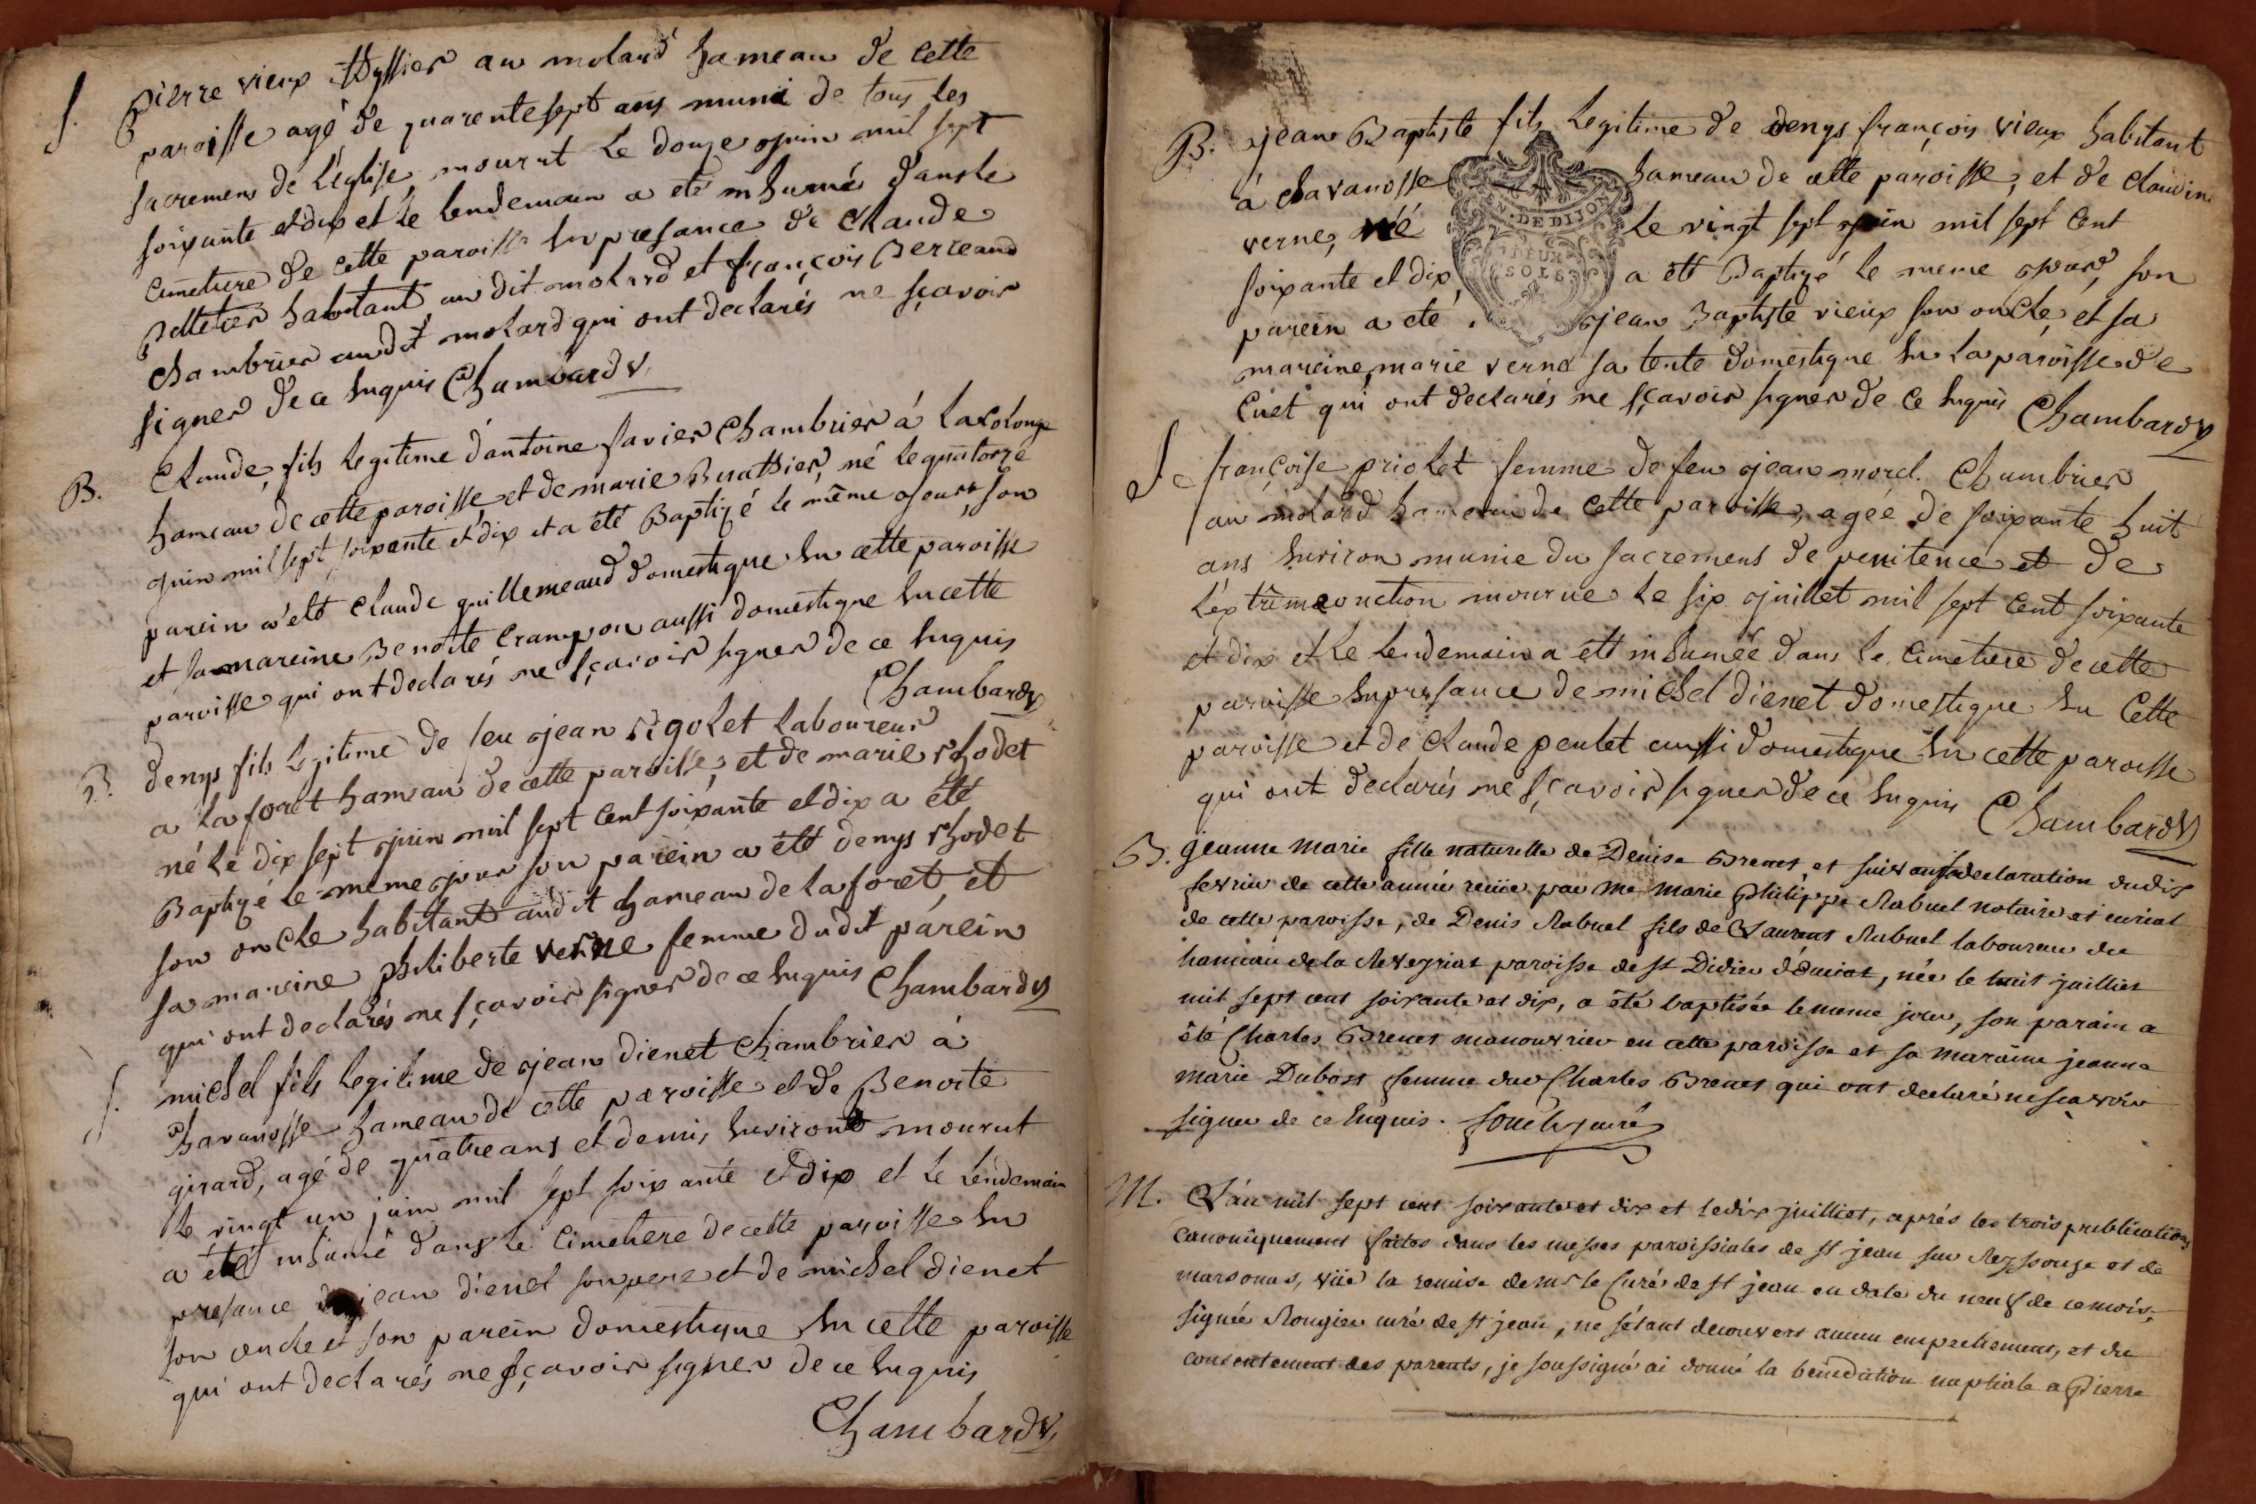 S. Pierre vieux Tyssier au molard hameau de cette
paroisse agé de quarente sept ans muni de tous les
sacremens de l'église, mourut le douze juin mil sept
soixante et dix et le lendemain a eté inhumé dans le
cimetiere de cette paroisse en presance de Claude
Pelletier habitant au dit molard et françois Berreaud
Chambrier audit molard qui ont declarés ne sçavoir
signer de ce enquis Chambard V.
B. Claude, fils legitime d'antoine favier Chambrier á la Colonge
hameau de cette paroisse et de marie Buathier, né le quatorze
juin mil sept soixante et dix et a été Baptizé le même jour, son
parein a eté Claude guillemeaud domestique en cette paroisse
et sa mareine Benoite Crampon aussi domestique en cette
paroisse qui ont declarés ne sçavoir signer de ce enquis
Chambard V
B. denys fils legitime de feu jean rigolet laboureur
a la foret hameau de cette paroisse, et de marie rhodet
né le dix sept juin mil sept cent soixante et dix a été
Baptizé le meme jour son parein a été denys rhodet
son oncle habitant audit hameau de la foret, et
sa mareine philiberte verne femme dudit parein
qui ont declarés ne sçavoir signer de ce enquis Chambard V
S. michel fils legitime de jean dienet Chambrier á
Chavanosse hameau de cette paroisse et de Benoite
girard, agé de quatre ans et demis environt mourut
le vingt un juin mil sept soixante et dix et le lendemain
a été inhumé dans le cimetiere de cette paroisse en
presance de jean dienet son pere et de michel dienet
son oncle et son parein domestique en cette paroisse
qui ont declarés ne sçavoir signer de ce enquis
Chambard V.
B. jean Baptiste fils legitime de denys françois vieux habitant
á Chavanosse hameau de cette paroisse, et de Clauine
verne, né le vingt sept juin mil sept cent
soixante et dix, a été Baptizé le meme jour, son
parein a eté jean Baptiste vieux son oncle, et sa
mareine marie verne sa tente domestique en la paroisse de
Cuet qui ont declarés ne sçavoir signer de ce enquis Chambard V
GEN. DE DIJON
DEUX
SOLS
S. françoise priolet femme de feu jean morel Chambrier
au molard hameau de cette paroisse, agée de soixante huit
ans environ munie du sacremens de penitence et de
l'éxtrémeonction mourue le six juillet mil sept cent soixante
et dix et le lendemain a été inhumée dans le cimetiere de cette
paroisse en presance de michel dienet domestique en cette
paroisse et de Claude peulet aussi domestique en cette paroisse
qui ont declarés ne sçavoir signer de ce enquis Chambard V
B. jeanne marie fille naturelle de Denise Brenet et suivant sa declaration du dix
fevrier de cette année reçue par me marie Philippe Rabuel notaire et curial
de cette paroisse, de Denis Rabuel fils de Laurent Rabuel laboureur du
hameau de la Reveyriat paroisse de st Didier d'aussiat, née le huit juilliet
mil sept cent soixante et dix, a été baptisée le meme jour, son parain a
été Charles Brenet manouvrier en cette paroisse et sa maraine jeanne
marie Dubost femme dud Charles Brenet qui ont declaré ne scavoir
signer de ce enquis. curé
M. L'an mil sept cent soixante et dix et le dix juilliet, aprés les trois publications
canoniquement faites dans les messes paroissiales de st jean sur Reyssouze et de
marsonas, vüe la remise de mr le Curé de st jean en date du neuf de ce mois,
signée Rougier curé de st jean, ne s'étant decouvert aucun empechement, et du
consentement des parents, je soussigné ai donné la bénédiction nuptiale a Pierre